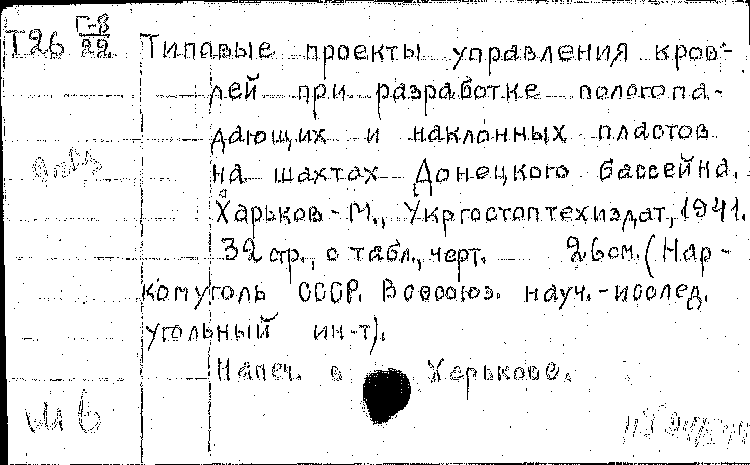 Т26 Г-8/22 Типовые проекты управления кров-
лей при разработке пологопа-
дающих и наклонных пластов
на шахтах Донецкого бассейна.
Харьков-М., Укргостоптехиздат, 1941.
32 стр., с табл., черт. 26 см. (Нар-
комуголь СССР. Всесоюз. науч.-исслед.
угольный ин-т).
Напеч. в Харькове.